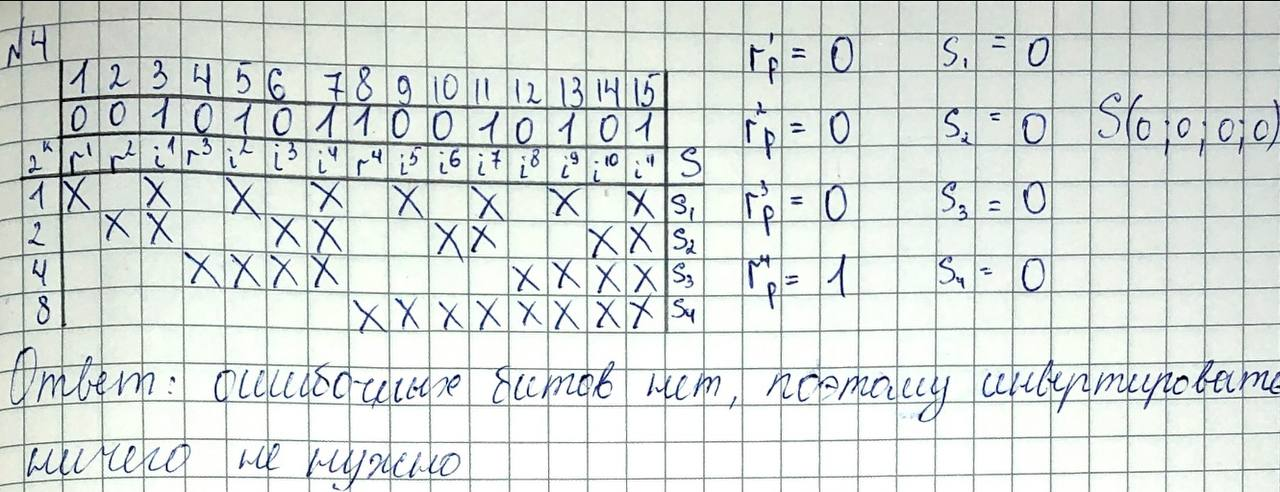 №4
1 2 3 4 5 6 7 8 9 10 11 12 13 14 15
0 0 1 0 1 0 1 1 0 0 1 0 1 0 1
2ᵏ r¹ r² i¹ r³ i² i³ i⁴ r⁴ i⁵ i⁶ i⁷ i⁸ i⁹ i¹⁰ i¹¹ S
1 X X X X X X X X S₁
2 X X X X X X X X S₂
4 X X X X X X X X S₃
8 X X X X X X X X S₄
r¹ₚ = 0 S₁ = 0
r²ₚ = 0 S₂ = 0 S(0;0;0;0)
r³ₚ = 0 S₃ = 0
r⁴ₚ = 1 S₄ = 0
Ответ: ошибочных битов нет, поэтому инвертировать
ничего не нужно